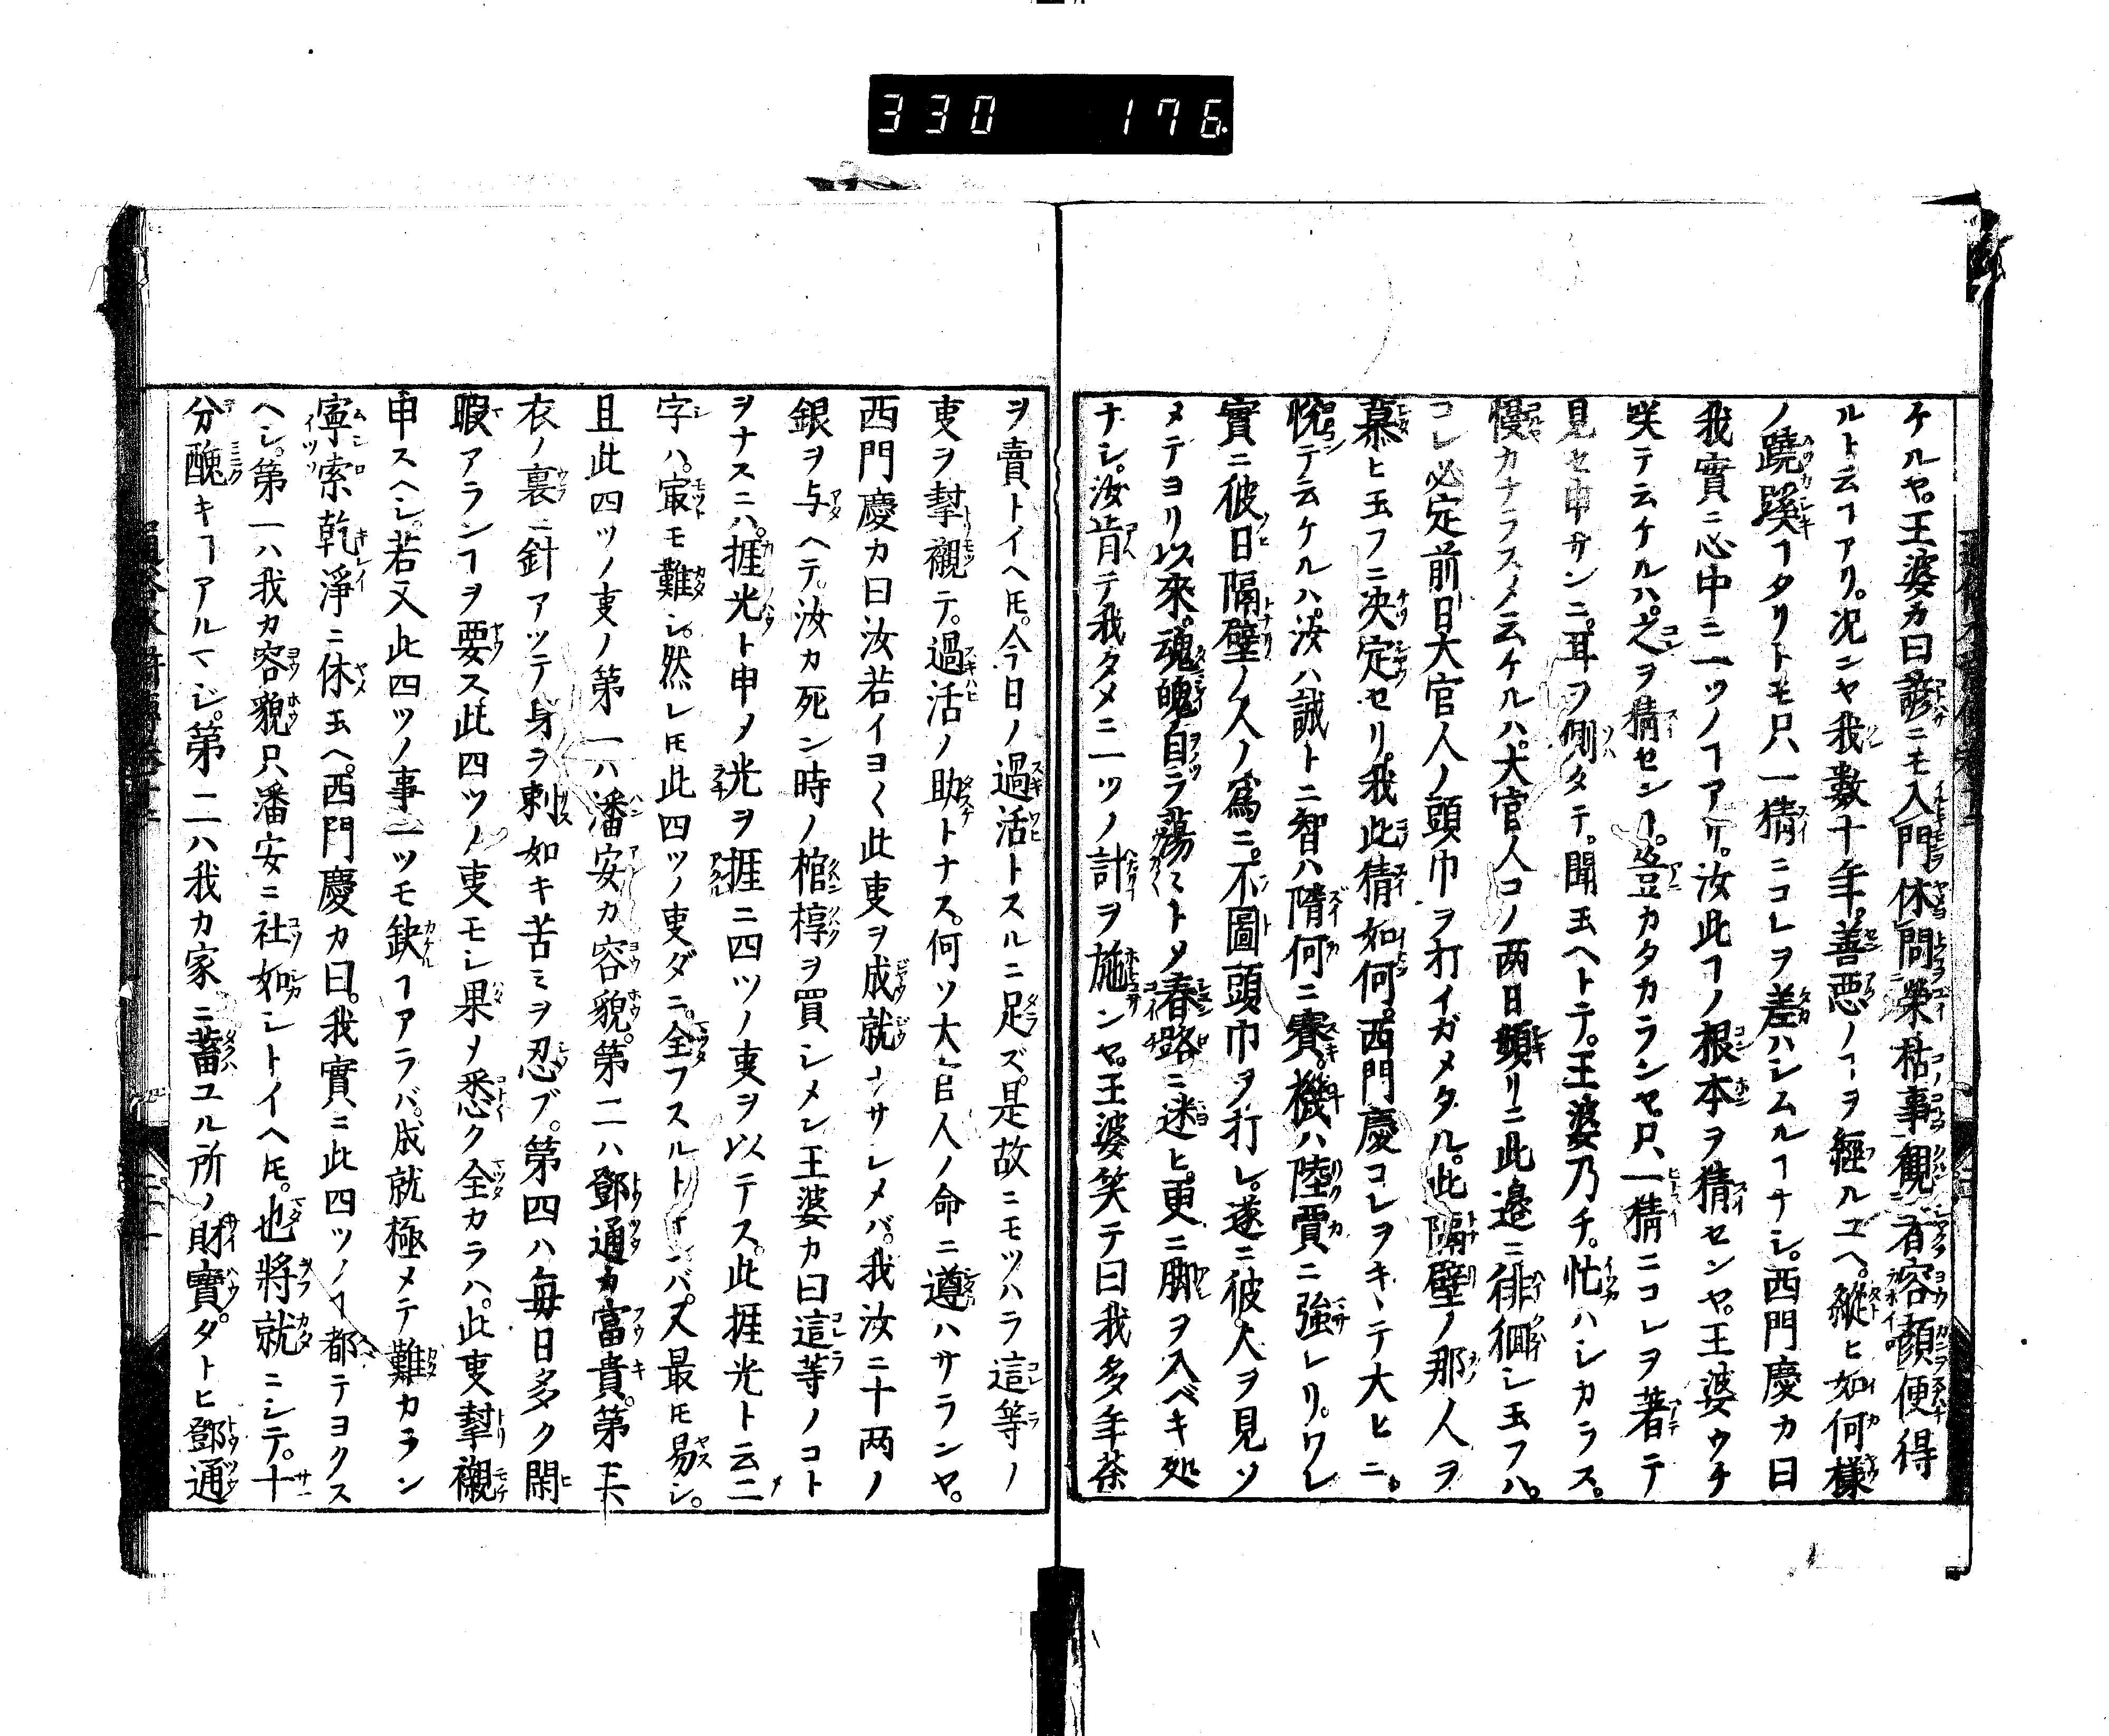 330 176
ケルヤ。王婆カ曰諺ニモ入門休問榮枯事觀看容顔便得
ルト云ヿアリ。况ンヤ我數十年。善悪ノヿヲ經ルユヘ。縱ヒ如何樣
ノ蹺蹊ヿタリトモ只一猜ニコレヲ差ハシムルヿナシ。西門慶カ曰
我實ニ心中ニ一ツノヿアリ。汝此ヿノ根本ヲ猜センヤ。王婆ウチ
咲テ云ケルハ。之ヲ猜センヿ。豈カタカランヤ。只一猜ニコレヲ著テ
見セ申サンニ。耳ヲ側タテ。聞玉ヘトテ。王婆乃チ。忙ハシカラス。
慢カナラスメ云ケルハ。大官人コノ两日頻リニ此邉ニ徘徊シ玉フハ。
コレ必定前日大官人ノ頭巾ヲ打イガメタル。此隔壁ノ那人ヲ
慕ヒ玉フニ决定セリ。我此猜如何。西門慶コレヲキヽテ大ヒニ。
悦テ云ケルハ。汝ハ誠トニ智ハ隋何ニ賽。機ハ陸賈ニ強レリ。ワレ
實ニ彼日隔壁ノ人ノ爲ニ。不圖頭巾ヲ打レ。遂ニ彼人ヲ見ソ
メテヨリ以來。魂魄自ラ蕩々トメ春路ニ迷ヒ。更ニ脚ヲ入ベキ処
ナシ。汝肯テ我タメニ一ツノ計ヲ施ンヤ。王婆笑テ曰我多年茶
ヲ賣トイヘ𪜈。今日ノ過活トスルニ足ズ。是故ニモツハラ這等ノ
叓ヲ挈襯テ。過活ノ助トナス。何ソ大官人ノ命ニ遵ハサランヤ。
西門慶カ曰汝若イヨ〱此叓ヲ成就ナサシメバ。我汝ニ十两ノ
銀ヲ与ヘテ。汝カ死ン時ノ棺椁ヲ買シメン王婆カ曰這等ノコト
ヲナスニハ。捱光ト申メ光ヲ捱ニ四ツノ叓ヲ以テス。此捱光ト云二
字ハ。㝡モ難シ。然レ𪜈此四ツノ叓ダニ。全フスルトナバ。又最𪜈易シ。
且此四ツノ叓ノ第一ハ潘安カ容貌。第二ハ鄧通カ富貴。第三ハ
衣ノ裏ニ針アツテ身ヲ刺如キ苦ミヲ忍ブ。第四ハ毎日多ク閑
暇アランヿヲ要ス此四ツノ叓モシ果メ悉ク全カラハ。此叓挈襯
申スヘシ。若又此四ツノ事一ツモ缺ヿアラバ。成就極メテ難カラン
寧索乾淨ニ休玉ヘ。西門慶カ曰。我實ニ此四ツノヿ都テヨクス
ヘシ。第一ハ我カ容貌只潘安ニ社如シトイヘ𪜈。也將就ニシテ。十
分醜キヿアルマジ。第二ハ我カ家ニ蓄ユル所ノ財寶。タトヒ鄧通